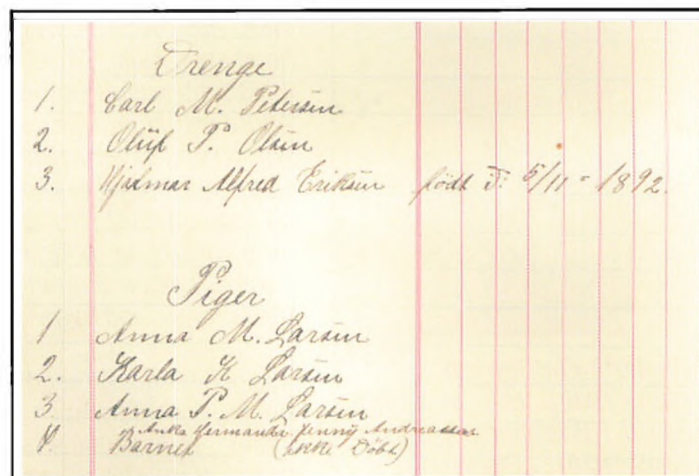 Drenge
1. Carl M. Petersen
2. Oluf P. Olsen
3. Hjalmar Alfred Eriksen födt d. 5/11 - 1892.
Piger
1 Anna M. Larsen
2. Karla K Larsen
3. Anna P. M. Larsen
Anka Hermanda Jenny Andreassen
4. Barnet (ikke Döbt)